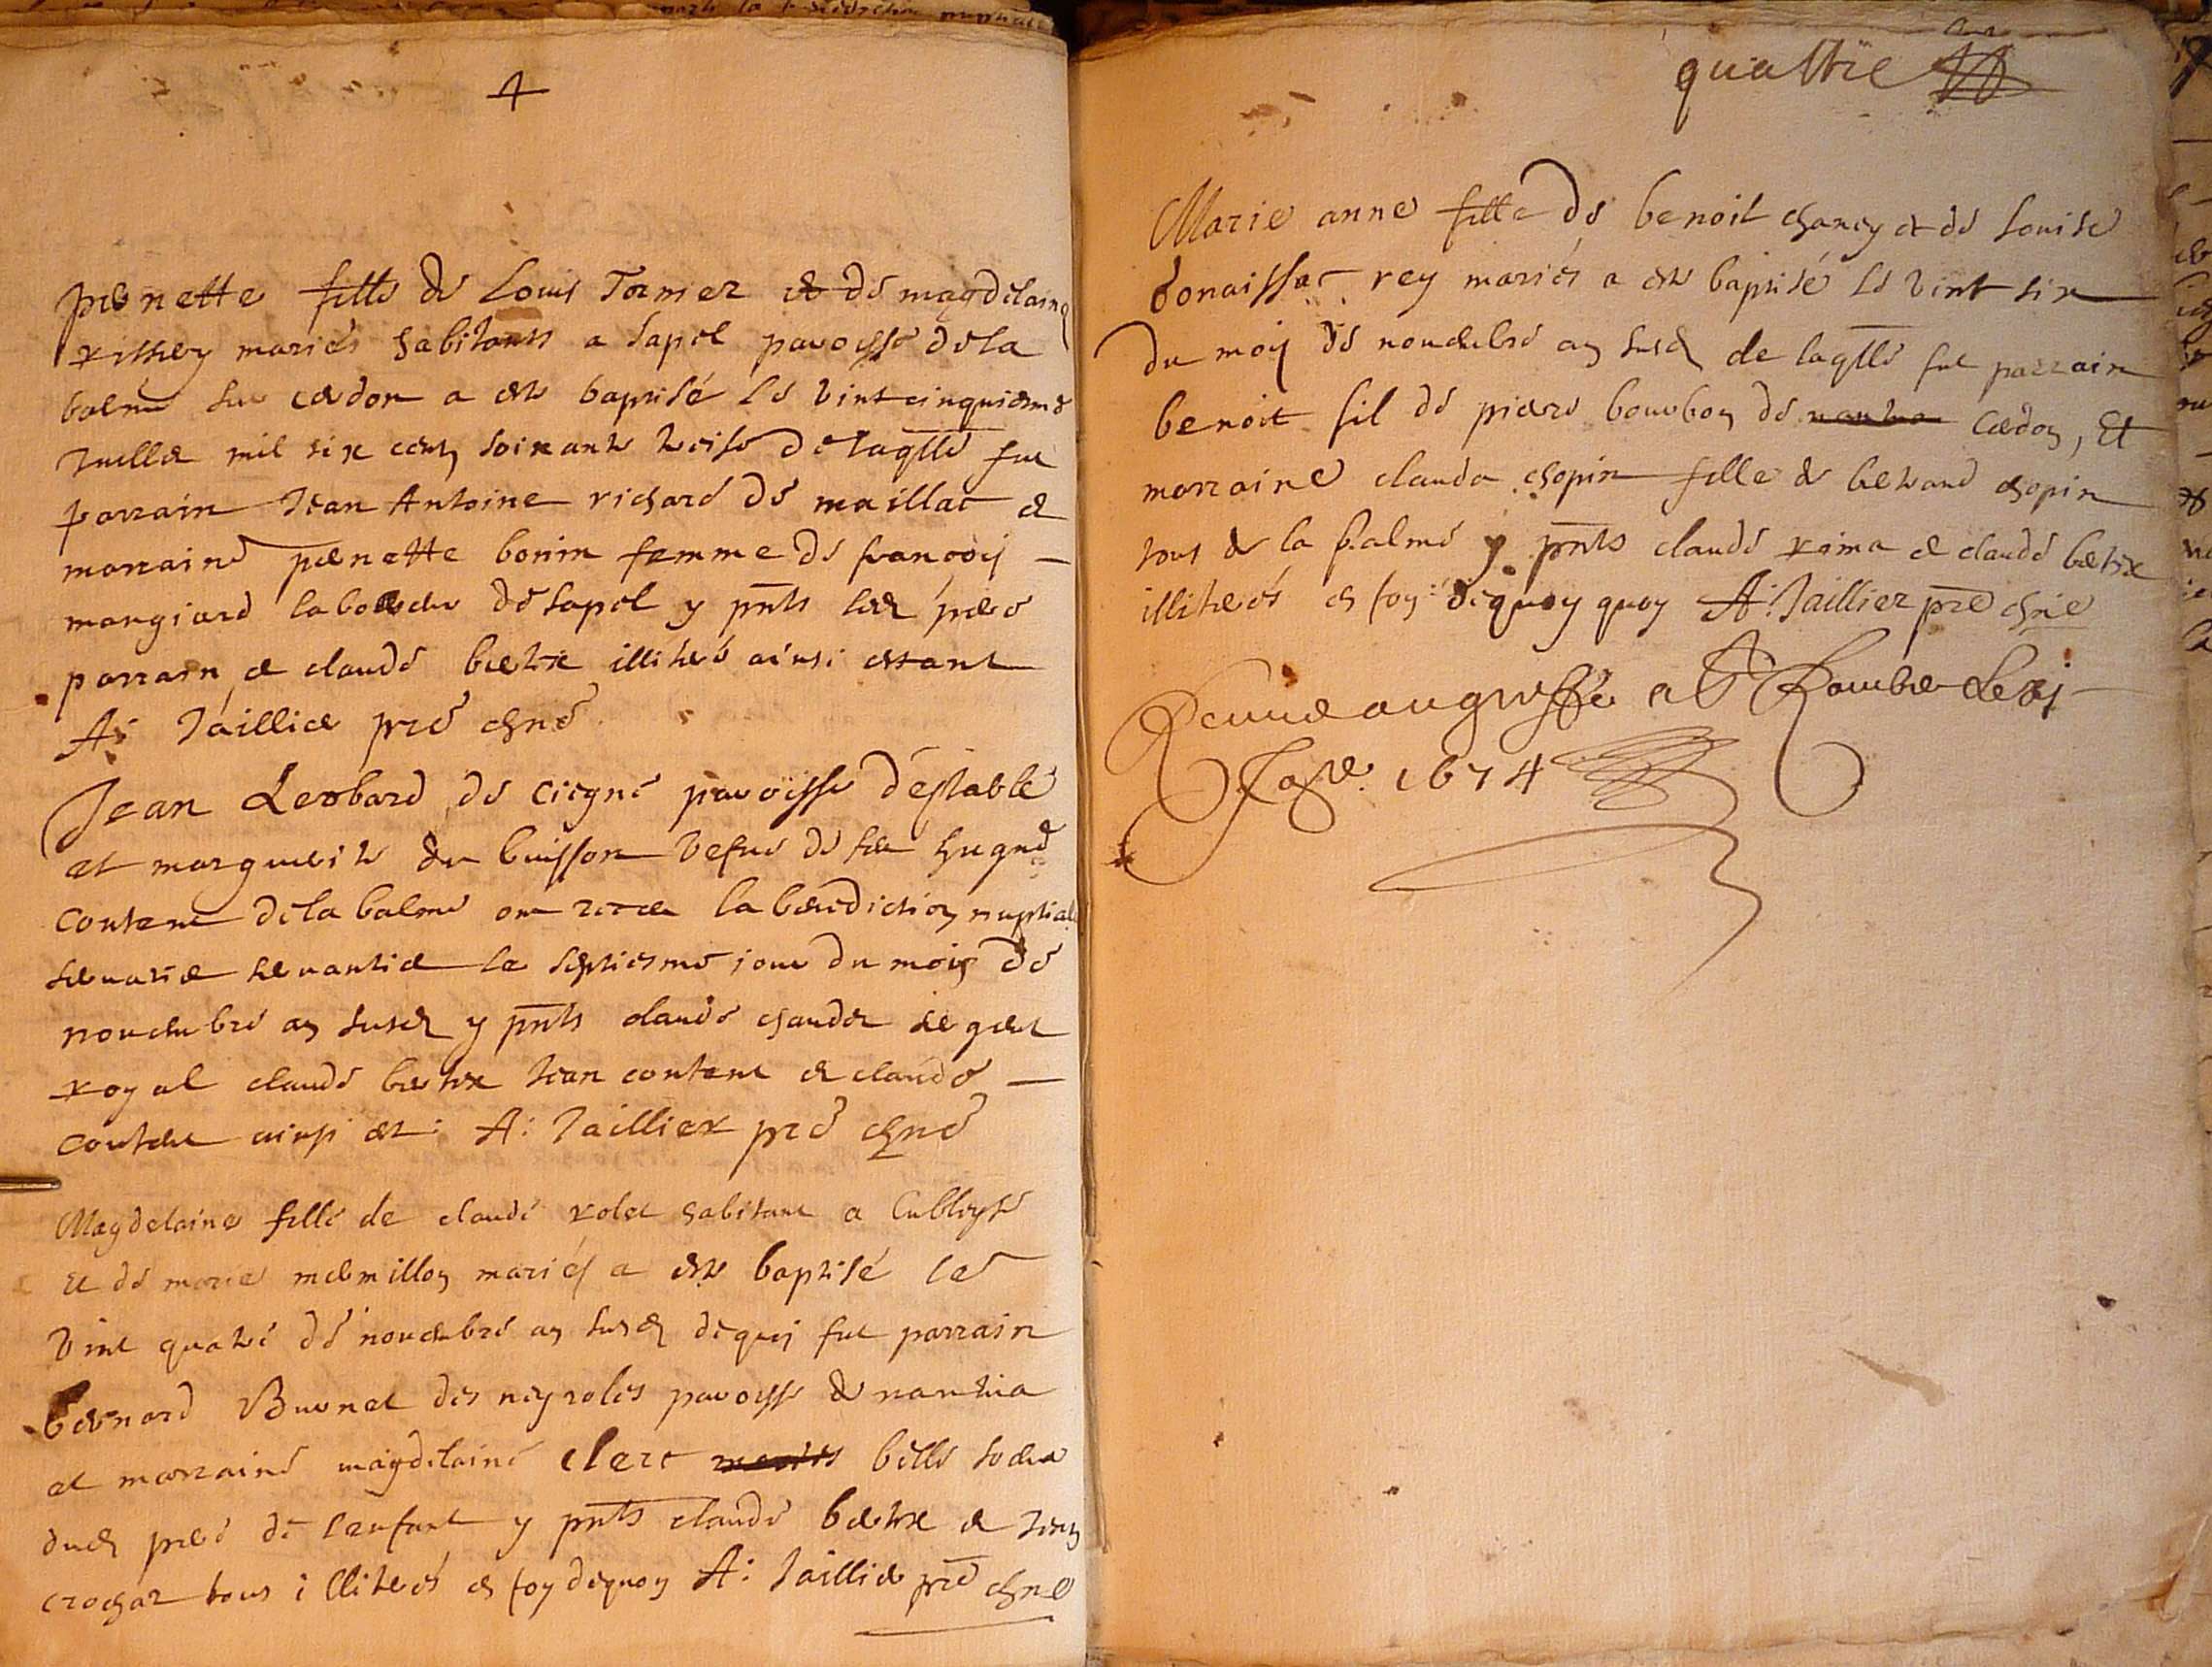 4
pernette fille de Louis Tornier et de magdelaine
mariés habitants a lapel paroisse dela
balme sur cerdon a este baptisé le vint cinquiesme
Juillet mil six cents soixante treise de laqlle fut
parrain Jean Antoine richard de maillat et
marraine pernette bonin femme de francois
mangiard laboureur de lapel y pnts les pere
parrain et claude bertre illiteré ainsi estant
A: Taillier pre chne
Jean Leobard de ciegne parroisse d'estable
et marguerite du buisson vefve de feu hugue
contene dela balme ont receu la benediction nuptiale
servatis servantis le septiesme jour du mois de
novembre an susd y pnts claude chanda sergent
royal claude bertre Jean contene et claude
contene ainsi est: A: Taillier pre chne
Magdelaine fille de claude rolet habitant a Cubleyse
Et de marie mermillon mariés a este baptisé le
vint quatre de novembre an susd dequoi fut parrain
bernard Burnet des neyroles paroisse de nantua
et marraine magdelaine clerc belle soeur
dud pere de lenfant y pnts claude bertre et Jean
crochar tous illiterés en foy dequoy A: Taillier pre chne
quattre
Marie anne fille de benoit chancy et de Louise
bonaissac rey mariés a este baptisé le vint six
du mois de novembre an susd de laqlle fut parrain
benoit fil de pierre bourbon de Cerdon, Et
marraine clauda chopin fille de bertrand chopin
tous de la Balme y pnts claude roima et claude bertre
illiterés en foy dequoy quoy A: Taillier pre chne
au greffe a St Rambert Le
1674